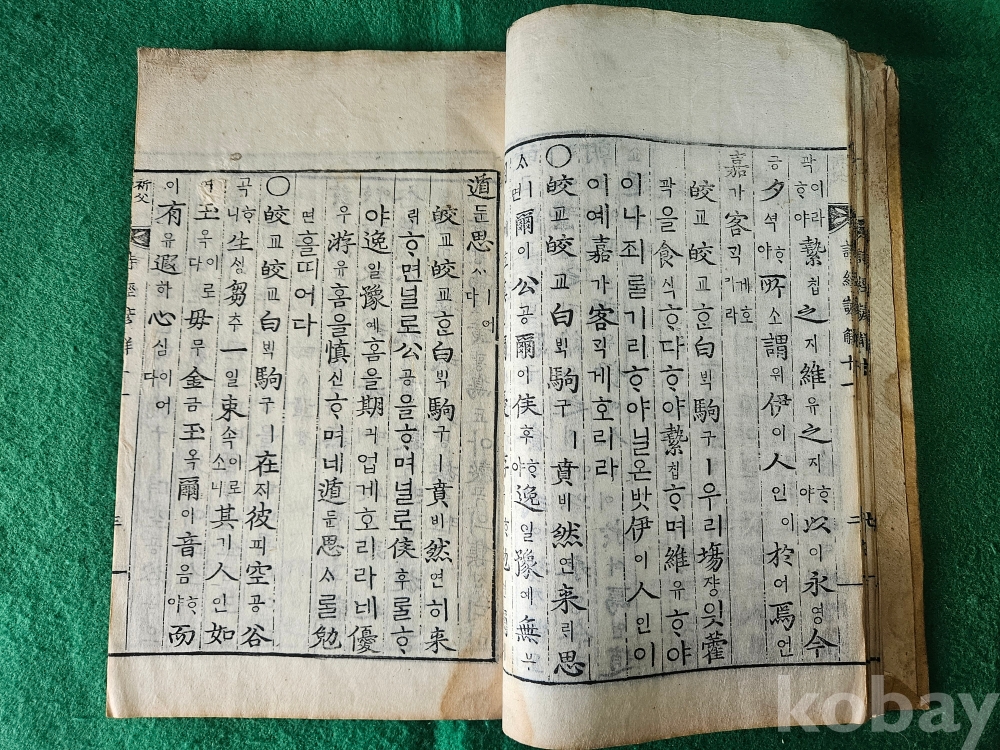 곽이라ᄒᆞ야縶칩之지維유之지ᄒᆞ야以이永영今
금夕셕ᄒᆞ야所소謂위伊이人인이於어焉언
嘉가客ᄀᆡᆨ게호리라
皎교皎교ᄒᆞᆫ白ᄇᆡᆨ駒구ㅣ우리場쟝잇藿
곽을食식ᄒᆞ다ᄒᆞ야縶칩ᄒᆞ며維유ᄒᆞ야
이나죄ᄅᆞᆯ기리ᄒᆞ야닐온밧伊이人인이
이예嘉가客ᄀᆡᆨ게호리라
○皎교皎교白ᄇᆡᆨ駒구ㅣ賁비然연来ᄅᆡ思
ᄉᆞㅣ면爾이公공爾이侯후ᄒᆞ야逸일豫예無무
遁둔思ᄉᆞㅣ어다
皎교皎교ᄒᆞᆫ白ᄇᆡᆨ駒구ㅣ賁비然연히来
ᄅᆡᄒᆞ면널로公공을ᄒᆞ며널로侯후ᄅᆞᆯᄒᆞ
야逸일豫예홈을期긔업게호리라네優
우游유홈을愼신ᄒᆞ며네遁둔思ᄉᆞᄅᆞᆯ勉
면홀띠어다
○皎교皎교白ᄇᆡᆨ駒구ㅣ在ᄌᆡ彼피空공谷
곡ᄒᆞ니生ᄉᆡᆼ芻추一일束속이로소니其기人인如
여玉옥이로다毋무金금玉옥爾이音음ᄒᆞ야而
이有유遐하心심이어다
詩經諺解十一
二
祈父
三
kobay